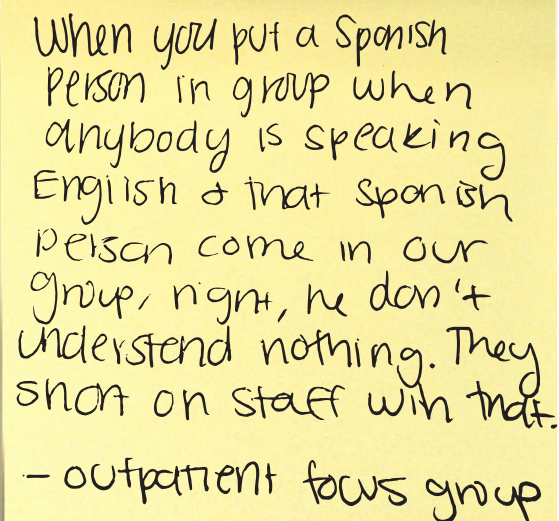 When you put a Spanish
person in group when
anybody is speaking
English & that Spanish
person come in our
group, right, he don't
understand nothing. They
short on staff with that.
- outpatient focus group